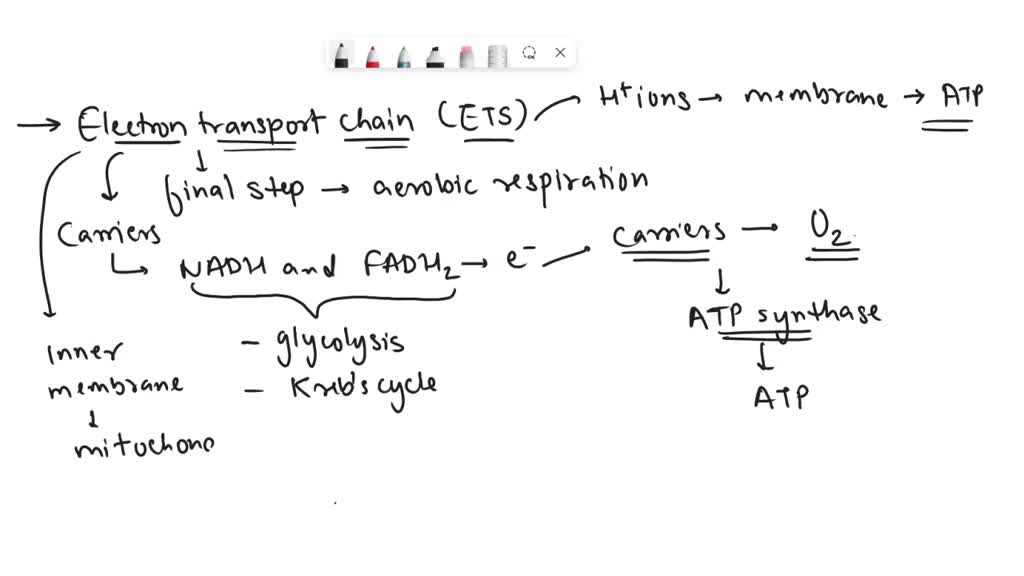 → Electron transport chain (ETS) H+ ions → membrane → ATP
↓ final step → aerobic respiration
Carriers
↳ NADH and FADH₂ → e⁻ carriers → O₂
↓
ATP synthase
↓
ATP
- glycolysis
- Kreb's cycle
Inner
membrane
↓
mitochond